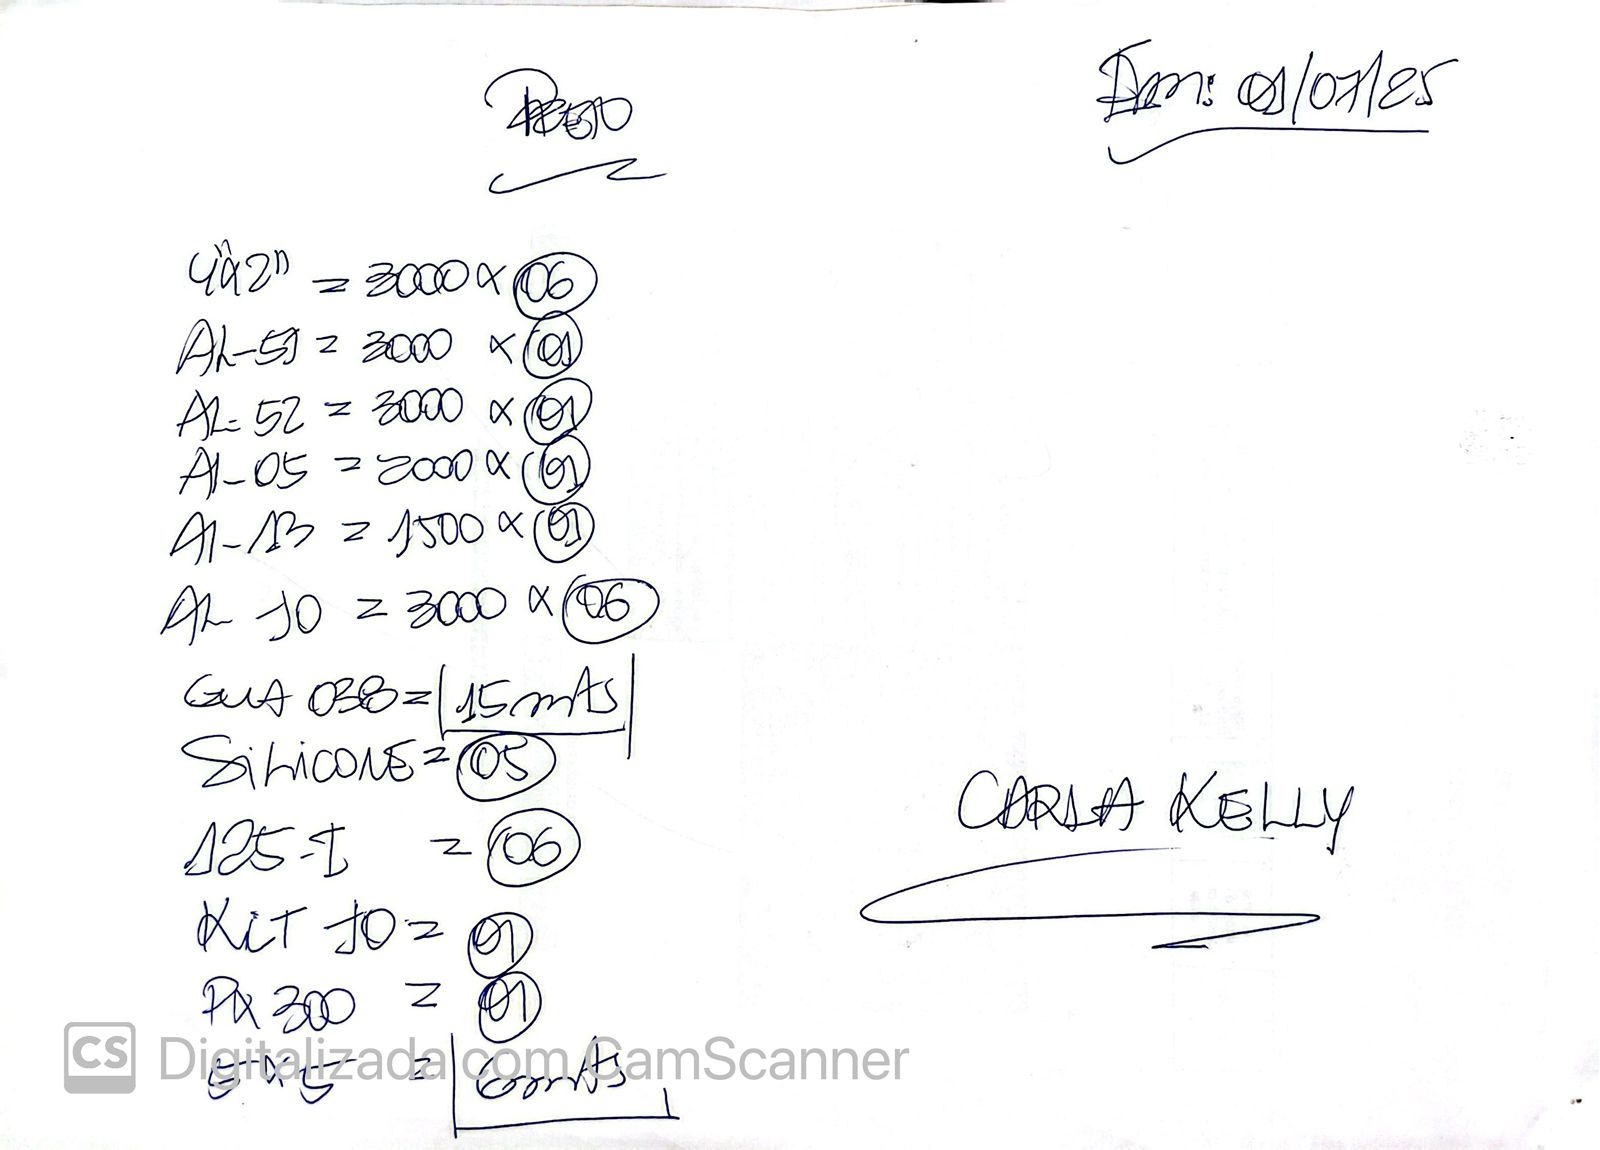 Preto
Em: 01/07/25
4"x2" = 3000 x 06
AL-51 = 3000 x 01
AL-52 = 3000 x 01
AL-05 = 2000 x 01
AL-13 = 1500 x 01
AL 10 = 3000 x 06
GUA 038 = 15 mts
SILICONE = 05
125-I = 06
KIT 10 = 01
PX 300 = 01
5x5 = 6 mts
CARLA KELLY
CS Digitalizada com CamScanner